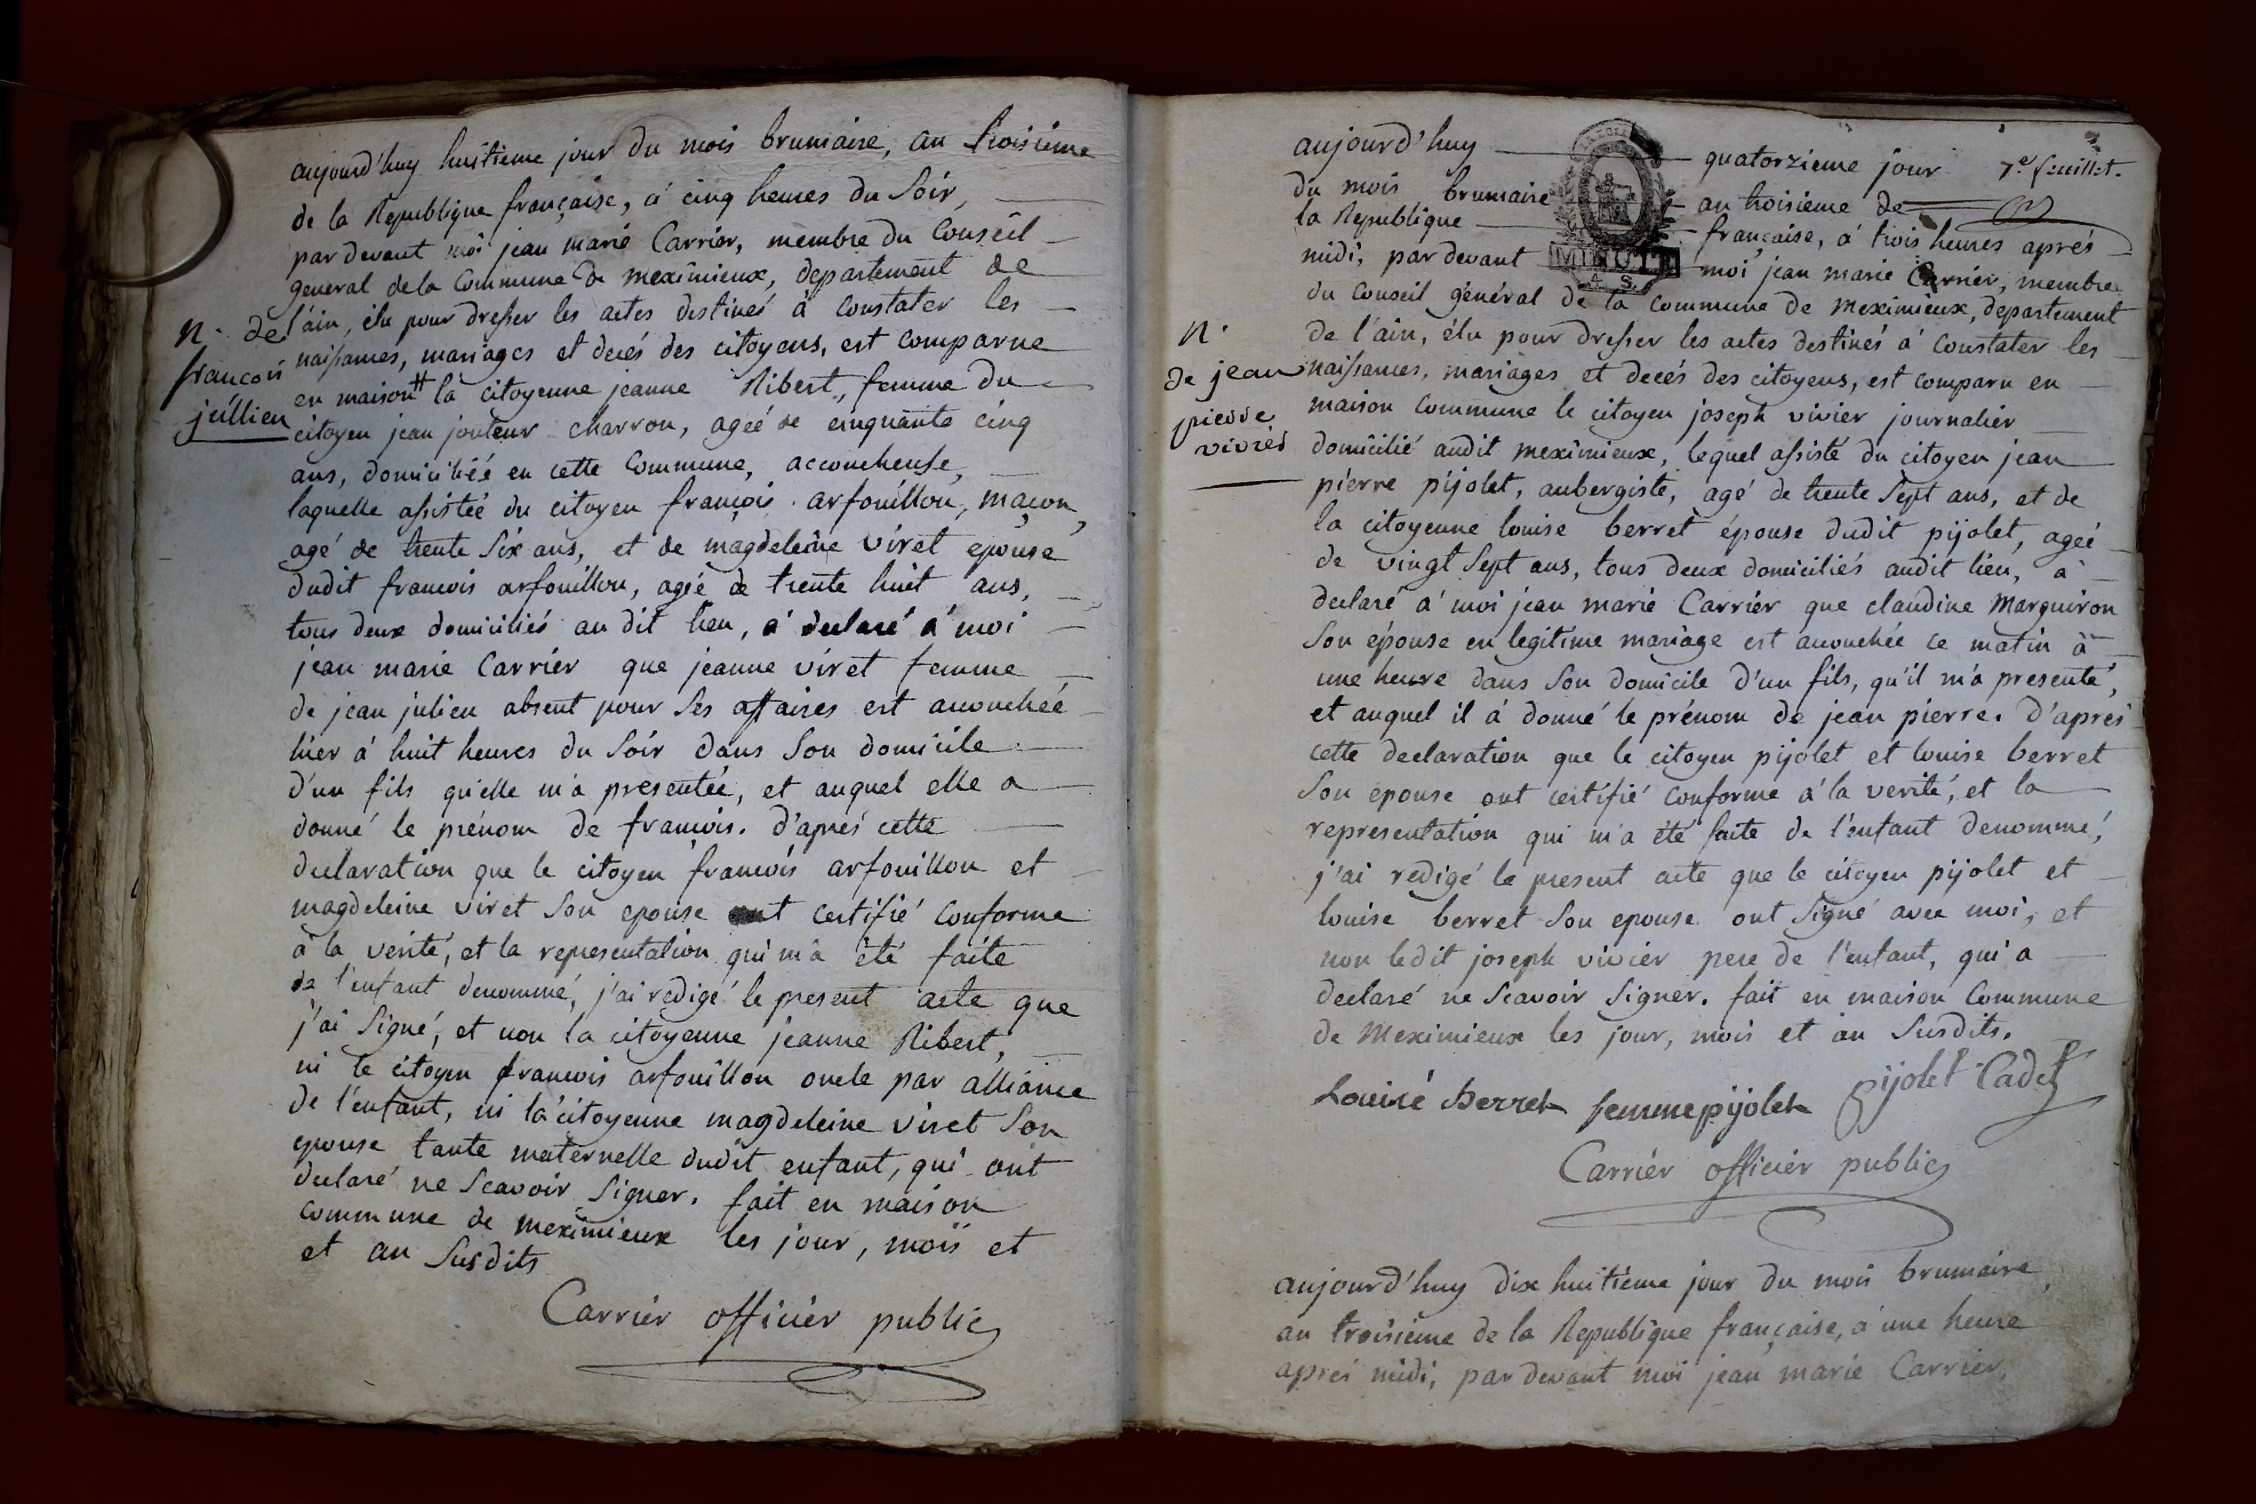 aujourd'huy huitieme jour du mois brumaire, an troisieme
de la Republique française, à cinq heures du soir,
pardevant moi jean marie Carrier, membre du Conseil
general de la Commune de meximieux, departement de
l'ain, élu pour dresser les actes destinés à constater les
naissances, mariages et decés des citoyens, est comparue
en maison # la citoyenne jeanne Ribert, femme du
citoyen jean jouteur charron, ageé de cinquante cinq
ans, domiciliéé en cette Commune, accoucheuse,
laquelle assistéé du citoyen françois arfouillon, maçon,
agé de trente six ans, et de magdeleine viret epouse
dudit francois arfouillon, agéé de trente huit ans,
tous deux domiciliés au dit lieu, à declaré à moi
jean marie Carrier que jeanne viret femme
de jean julien absent pour ses affaires est accouchéé
hier à huit heures du soir dans son domicile
d'un fils qu'elle m'a presentéé, et auquel elle a
donné le prénom de francois. d'aprés cette
declaration que le citoyen francois arfouillon et
magdeleine viret son epouse ont certifié conforme
à la verité, et la representation qui m'a été faite
de l'enfant denommé, j'ai redigé le present acte que
j'ai signé, et non la citoyenne jeanne Ribert,
ni le citoyen francois arfouillon oncle par alliance
de l'enfant, ni la citoyenne magdeleine viret son
epouse tante maternelle dudit enfant, qui ont
declaré ne scavoir signer. fait en maison
commune de meximieux les jour, mois et
et an susdits
Carrier officier public
N. de
françois
jullien
7e feuillet.
aujourd'huy quatorzieme jour
du mois brumaire an troisieme de
la Republique française, à trois heures aprés
midi, pardevant moi jean marie Carrier, membre
du conseil général de la commune de meximieux, departement
de l'ain, élu pour dresser les actes destinés à constater les
naissances, mariages et decés des citoyens, est comparu en
maison commune le citoyen joseph vivier journalier
domicilié audit meximieux, lequel assisté du citoyen jean
pierre pijolet, aubergiste, agé de trente sept ans, et de
la citoyenne louise berret épouse dudit pijolet, ageé
de vingt sept ans, tous deux domiciliés audit lieu, à
declaré à moi jean marie Carrier que claudine Marguiron
son épouse en legitime mariage est accouchée ce matin à
une heure dans son domicile d'un fils, qu'il m'a presenté,
et auquel il à donné le prénom de jean pierre. D'aprés
cette declaration que le citoyen pijolet et louise berret
son epouse ont certifié conforme à la verité, et la
representation qui m'a été faite de l'enfant denommé,
j'ai redigé le present acte que le citoyen pijolet et
louise berret son epouse ont signé avec moi, et
non ledit joseph vivier pere de l'enfant, qui a
declaré ne scavoir signer. fait en maison Commune
de Meximieux les jour, mois et an susdits.
Louise Berret femme pijolet pijolet Cadet
Carrier officier public
N.
de jean
pierre
vivier
aujourd'huy dix huitieme jour du mois brumaire
an troisieme de la Republique française, à une heure
aprés midi, pardevant moi jean marie Carrier,